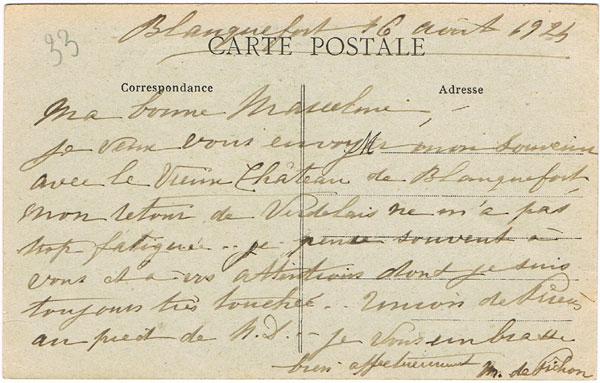 33
Blanquefort 16 août 192
CARTE POSTALE
Correspondance
Adresse
Ma bonne Marceline,
je veux vous envoyer mon souvenir
avec le Vieux Château de Blanquefort
mon retour de Verdelais ne m'a pas
trop fatiguée.. je pense souvent à
vous et à vos attentions dont je suis
toujours très touchée.. Union de Prières
au pied de N. D. - je vous embrasse
bien affectueusement M. de Pichon